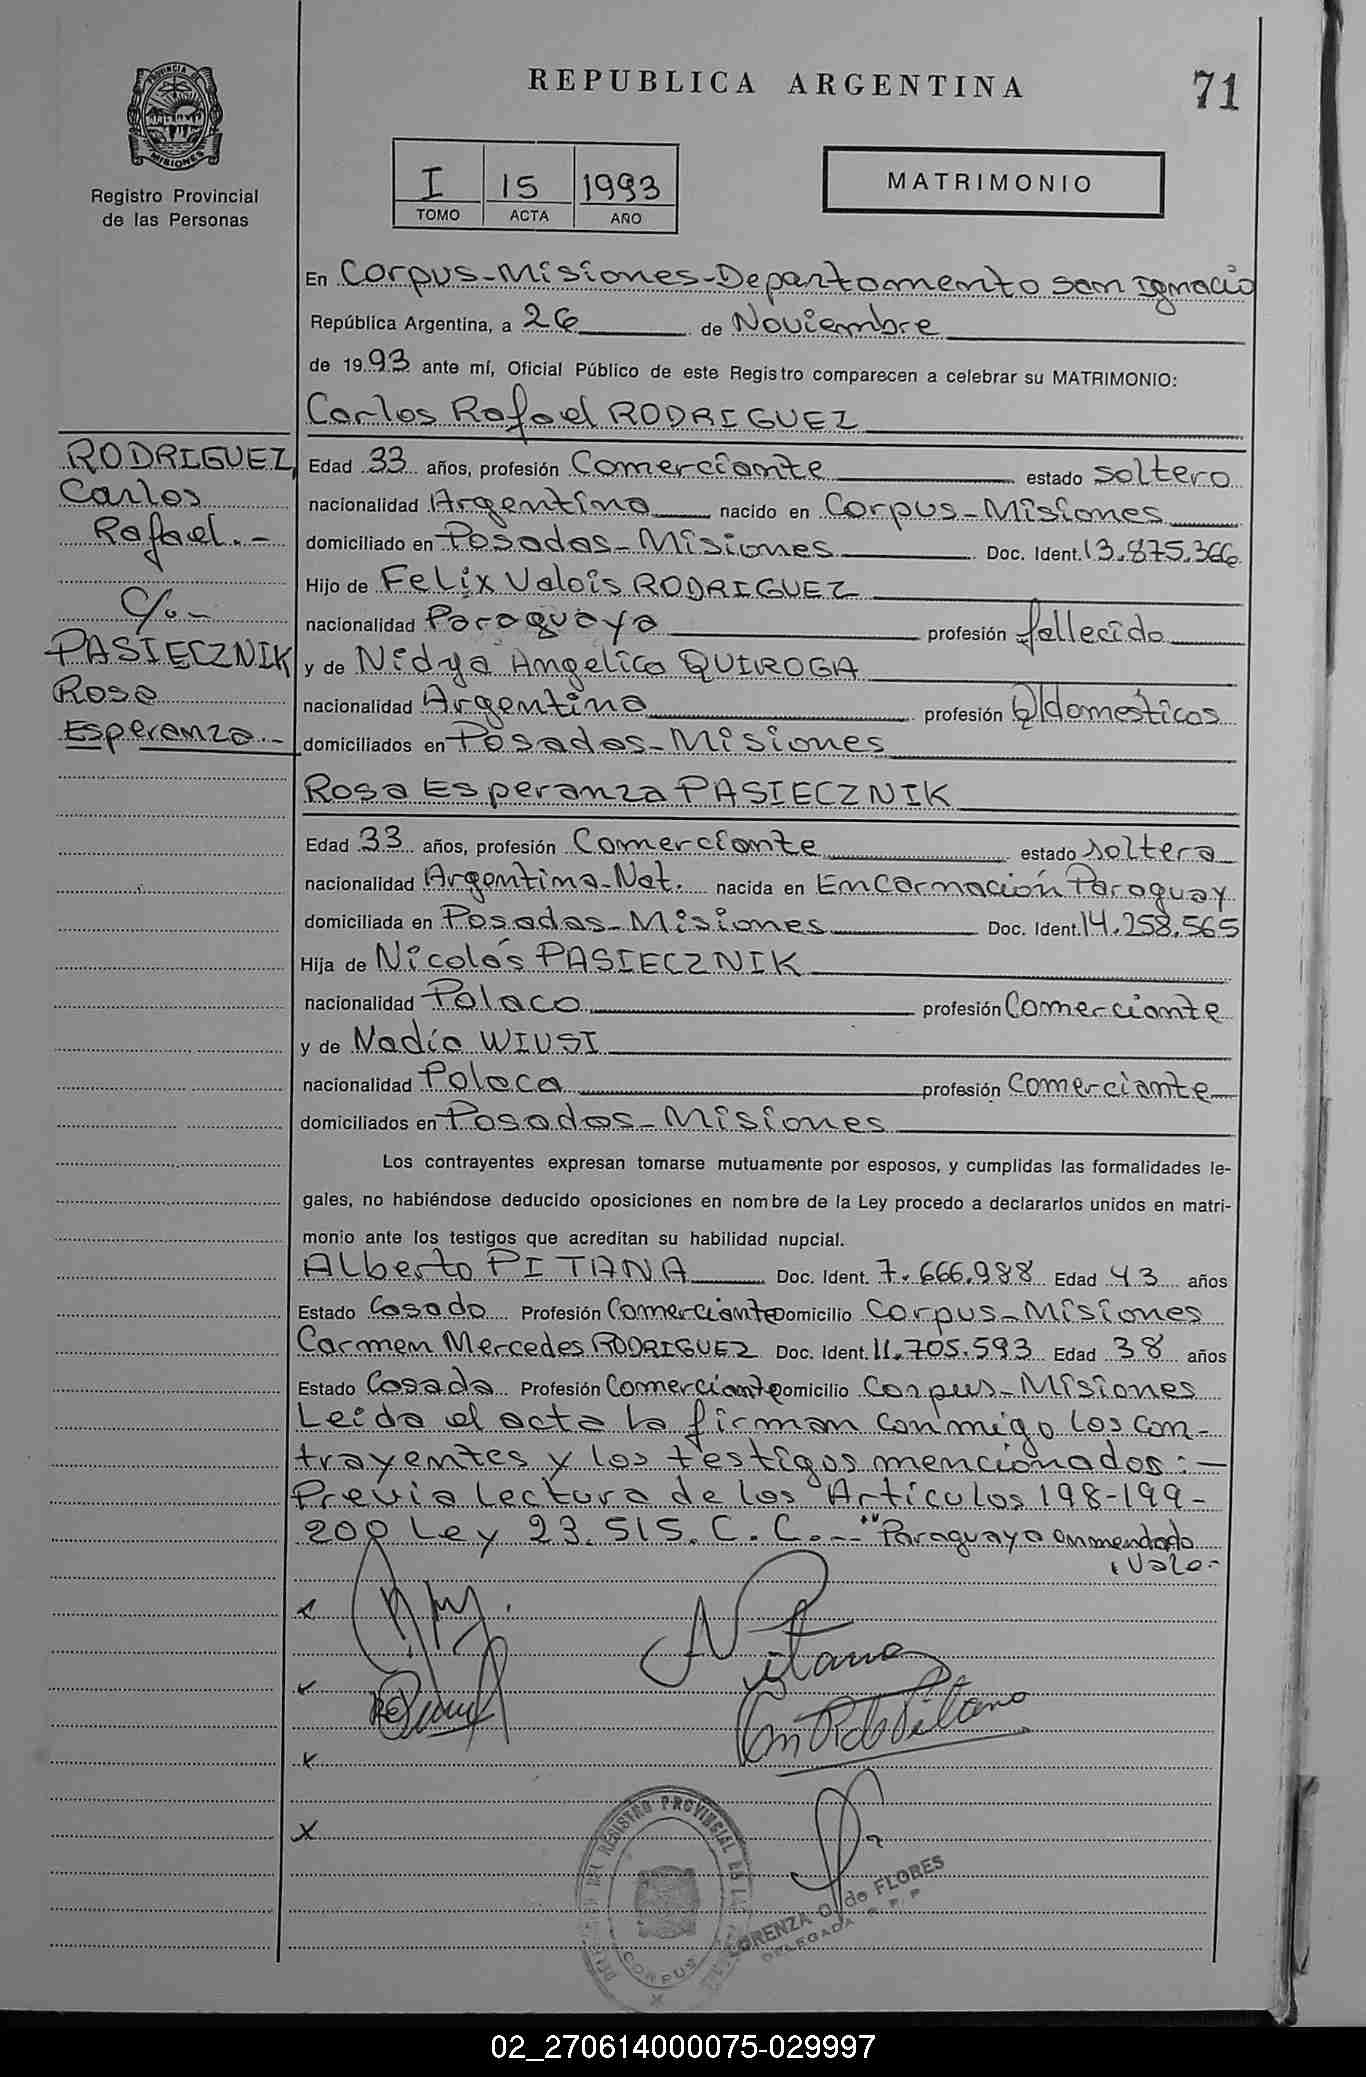 REPUBLICA ARGENTINA
71
PROVINCIA DE
MISIONES
Registro Provincial
de las Personas
I 15 1993
TOMO ACTA AÑO
MATRIMONIO
En Corpus-Misiones-Departamento San Ignacio
República Argentina, a 26 de Noviembre
de 1993 ante mí, Oficial Público de este Registro comparecen a celebrar su MATRIMONIO:
Carlos Rafael RODRIGUEZ
RODRIGUEZ,
Carlos
Rafael.-
C/.-
PASIECZNIK
Rosa
Esperanza.-
Edad 33 años, profesión Comerciante estado soltero
nacionalidad Argentina nacido en Corpus-Misiones
domiciliado en Posadas-Misiones Doc. Ident. 13.875.366
Hijo de Felix Valois RODRIGUEZ
nacionalidad Paraguaya profesión fallecido
y de Nidya Angelica QUIROGA
nacionalidad Argentina profesión Q/domésticos
domiciliados en Posadas-Misiones
Rosa Esperanza PASIECZNIK
Edad 33 años, profesión Comerciante estado soltera
nacionalidad Argentina-Nat. nacida en Encarnación Paraguay
domiciliada en Posadas-Misiones Doc. Ident. 14.258.565
Hija de Nicolás PASIECZNIK
nacionalidad Polaco profesión Comerciante
y de Nadia WIUSI
nacionalidad Polaca profesión Comerciante
domiciliados en Posadas-Misiones
Los contrayentes expresan tomarse mutuamente por esposos, y cumplidas las formalidades le-
gales, no habiéndose deducido oposiciones en nombre de la Ley procedo a declararlos unidos en matri-
monio ante los testigos que acreditan su habilidad nupcial.
Alberto PITANA Doc. Ident. 7.666.988 Edad 43 años
Estado Casado Profesión Comerciante Domicilio Corpus-Misiones
Carmen Mercedes RODRIGUEZ Doc. Ident. 11.705.593 Edad 38 años
Estado Casada Profesión Comerciante Domicilio Corpus-Misiones
Leida el acta la firman conmigo los con-
trayentes y los testigos mencionados:-
Previa lectura de los Artículos 198-199-
200 Ley 23.515.C.C.- "Paraguaya enmendado
vale-
Pitana
de Pitana
REGISTRO PROVINCIAL DE LAS
CORPUS
LORENZA O. de FLORES
DELEGADA R.P.P
02_270614000075-029997